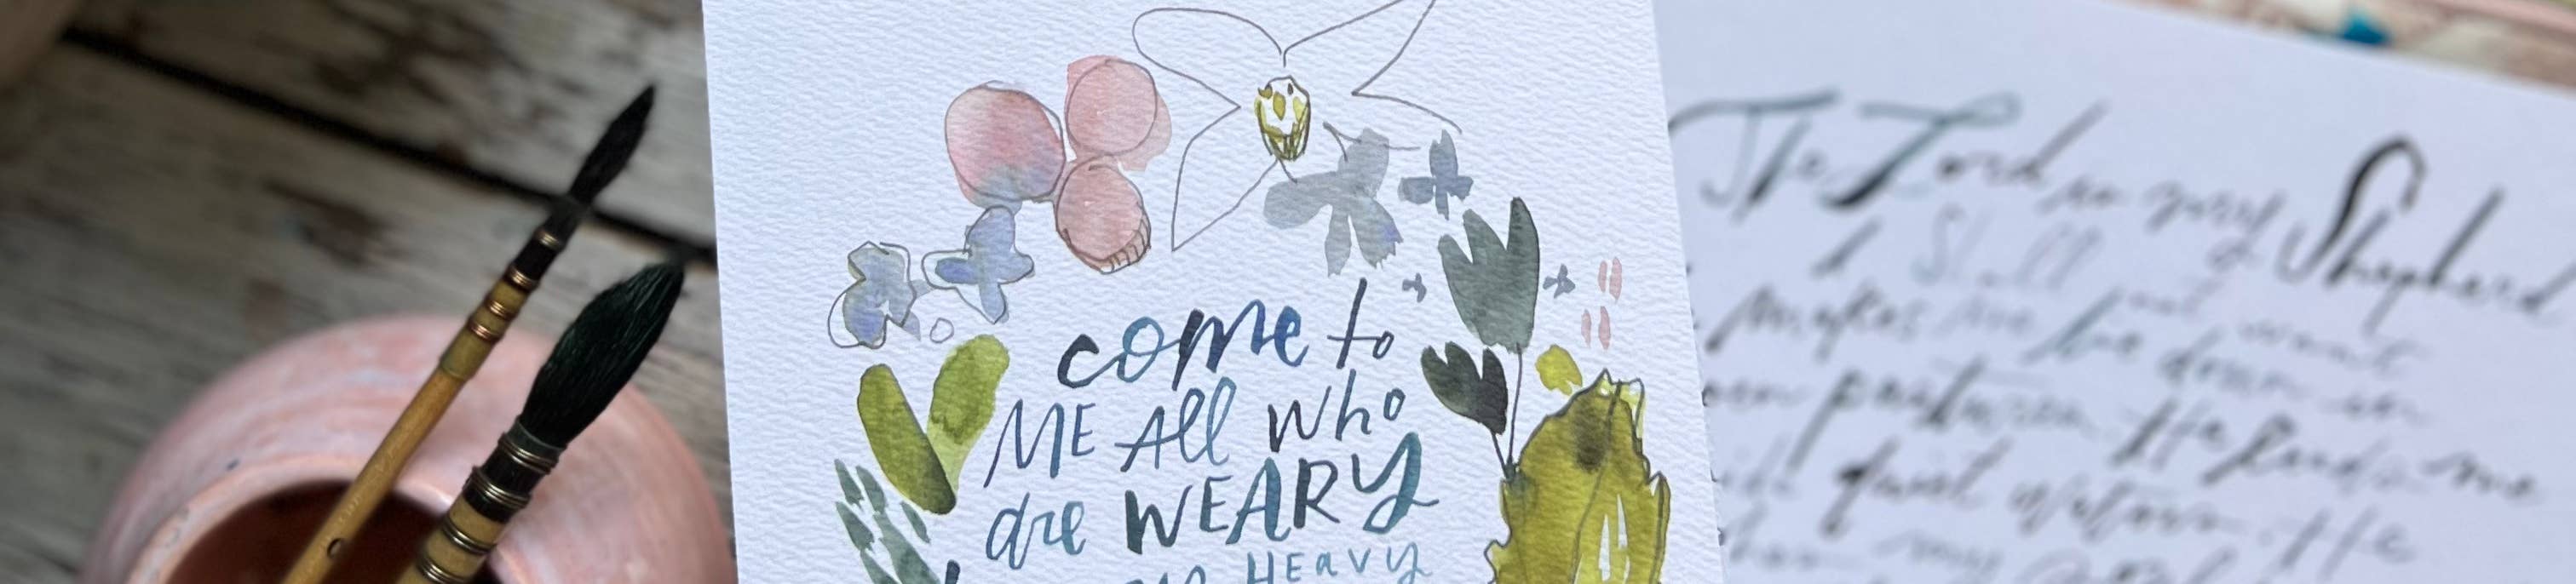 come to
ME All who
are WEARY
HEAVY
The Lord is my Shepherd
I Shall not want
makes me lie down in
pastures He leads me
quiet waters He
my